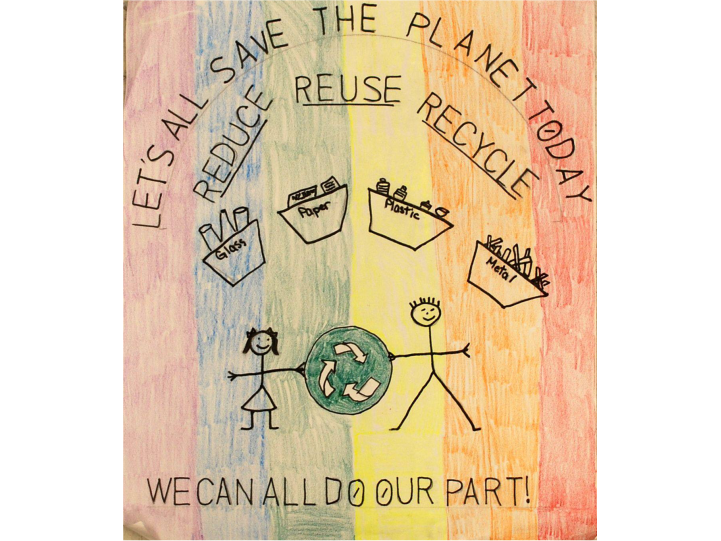 LET'S ALL SAVE THE PLANET TODAY
REDUCE REUSE RECYCLE
Glass
Paper
Plastic
Metal
WE CAN ALL DO OUR PART!